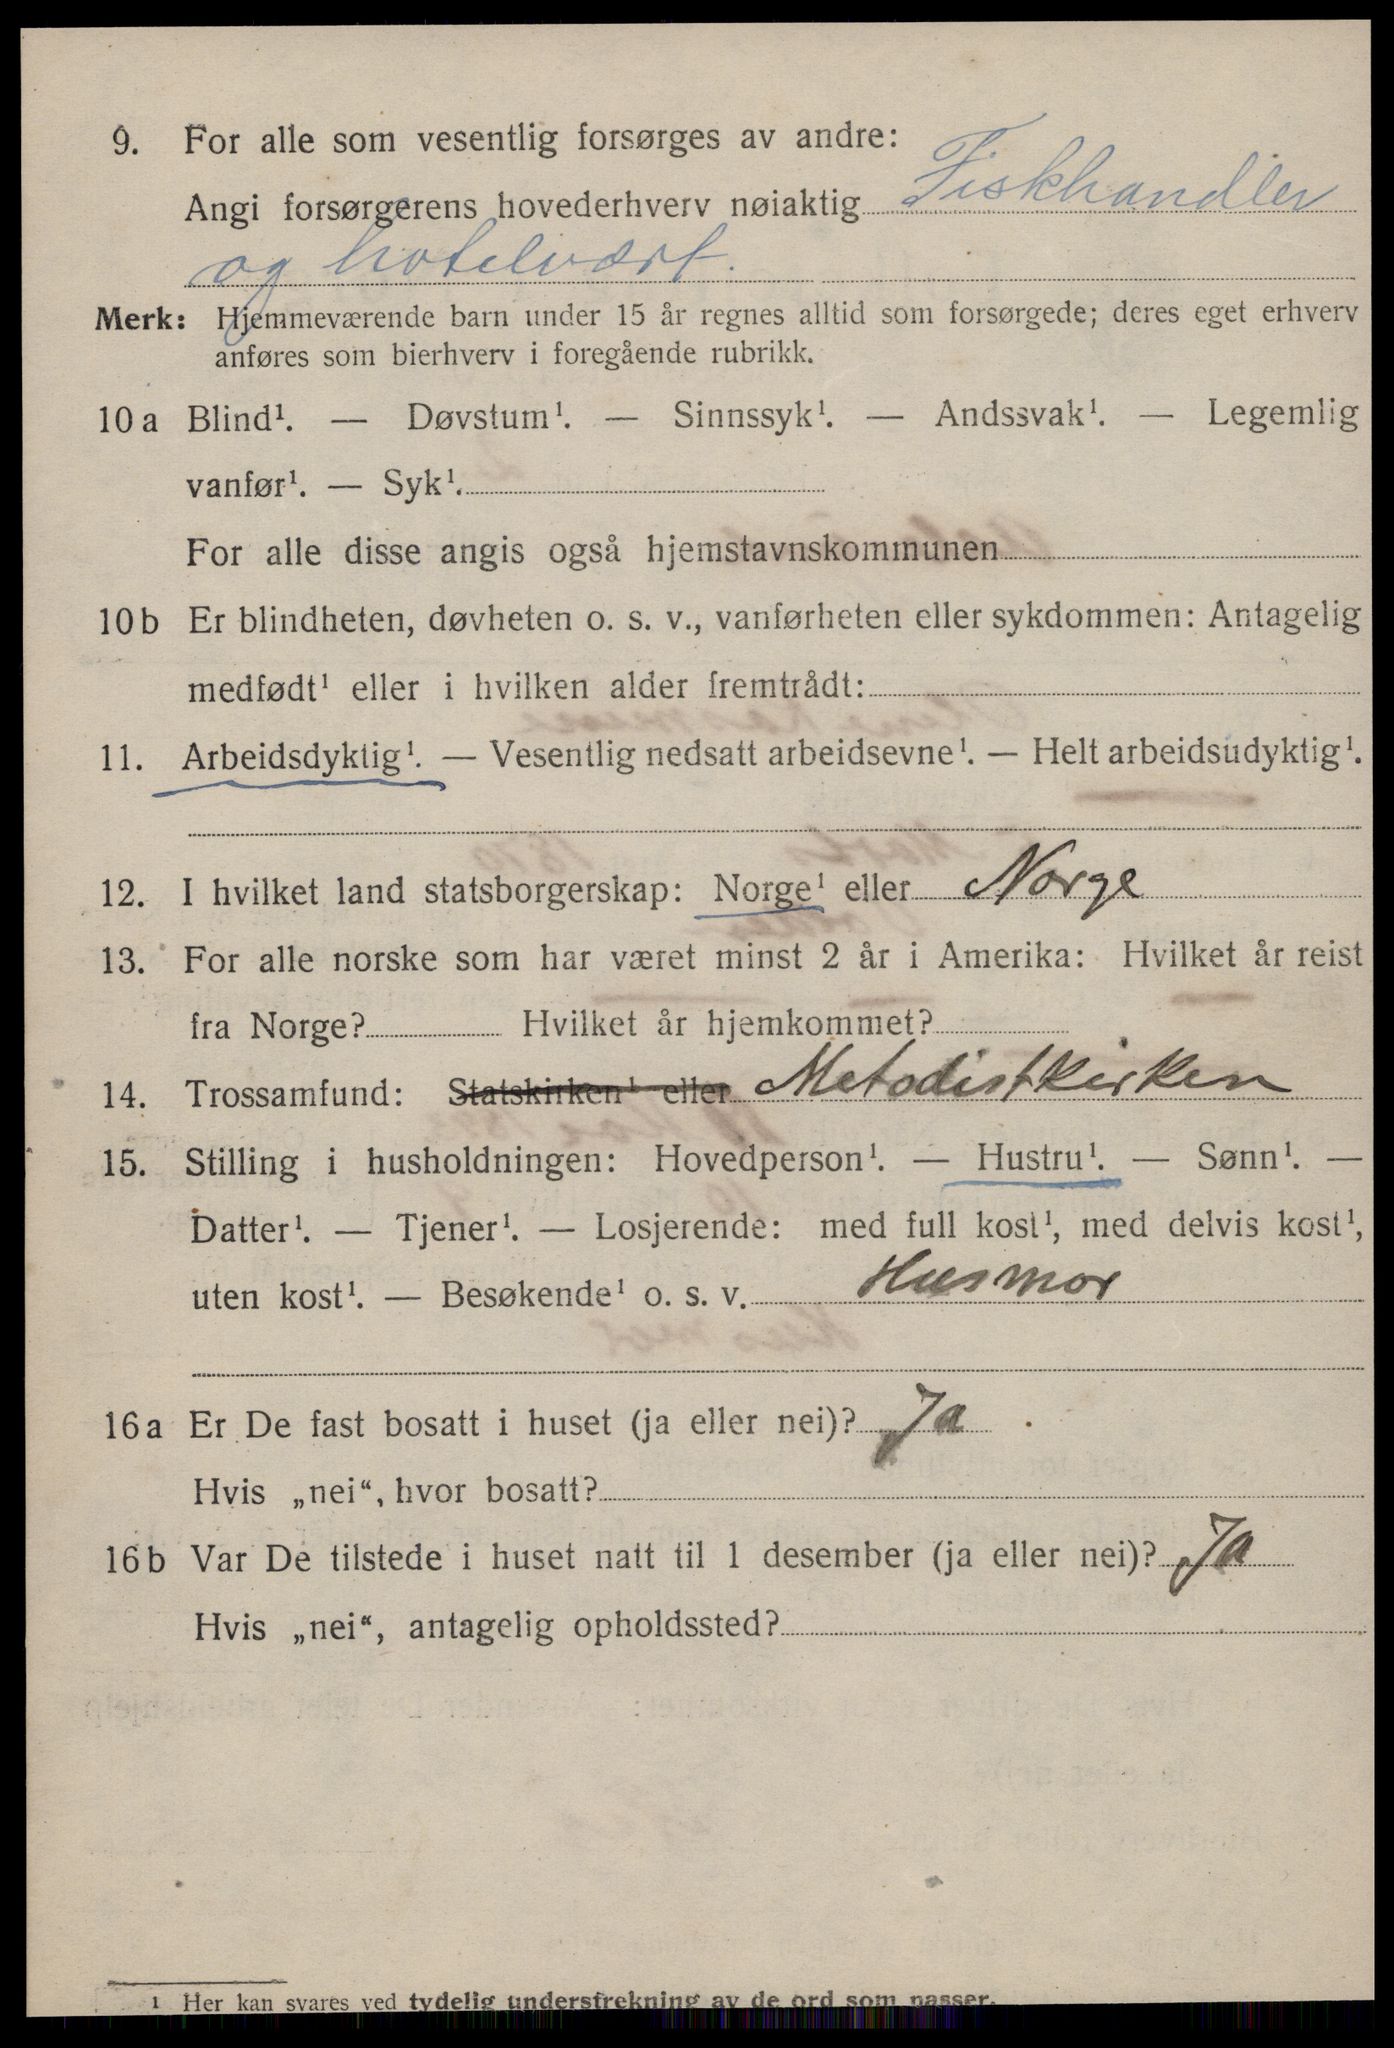 9. For alle som vesentlig forsørges av andre:
Angi forsørgerens hovederhverv nøiaktig Fiskhandler
og hotelvært.
Merk: Hjemmeværende barn under 15 år regnes alltid som forsørgede; deres eget erhverv
anføres som bierhverv i foregående rubrikk.
10 a Blind¹. — Døvstum¹. — Sinnssyk¹. — Andssvak¹. — Legemlig
vanfør¹. — Syk¹.
For alle disse angis også hjemstavnskommunen
10 b Er blindheten, døvheten o. s. v., vanførheten eller sykdommen: Antagelig
medfødt¹ eller i hvilken alder fremtrådt:
11. Arbeidsdyktig¹. — Vesentlig nedsatt arbeidsevne¹. — Helt arbeidsudyktig¹.
12. I hvilket land statsborgerskap: Norge¹ eller Norge
13. For alle norske som har været minst 2 år i Amerika: Hvilket år reist
fra Norge? Hvilket år hjemkommet?
14. Trossamfund: Statskirken¹ eller Metodistkirken
15. Stilling i husholdningen: Hovedperson¹. — Hustru¹. — Sønn¹. —
Datter¹. — Tjener¹. — Losjerende: med full kost¹, med delvis kost¹,
uten kost¹. — Besøkende¹ o. s. v. Husmor
16 a Er De fast bosatt i huset (ja eller nei)? Ja
Hvis „nei“, hvor bosatt?
16 b Var De tilstede i huset natt til 1 desember (ja eller nei)? Ja
Hvis „nei“, antagelig opholdssted?
¹ Her kan svares ved tydelig understrekning av de ord som passer.